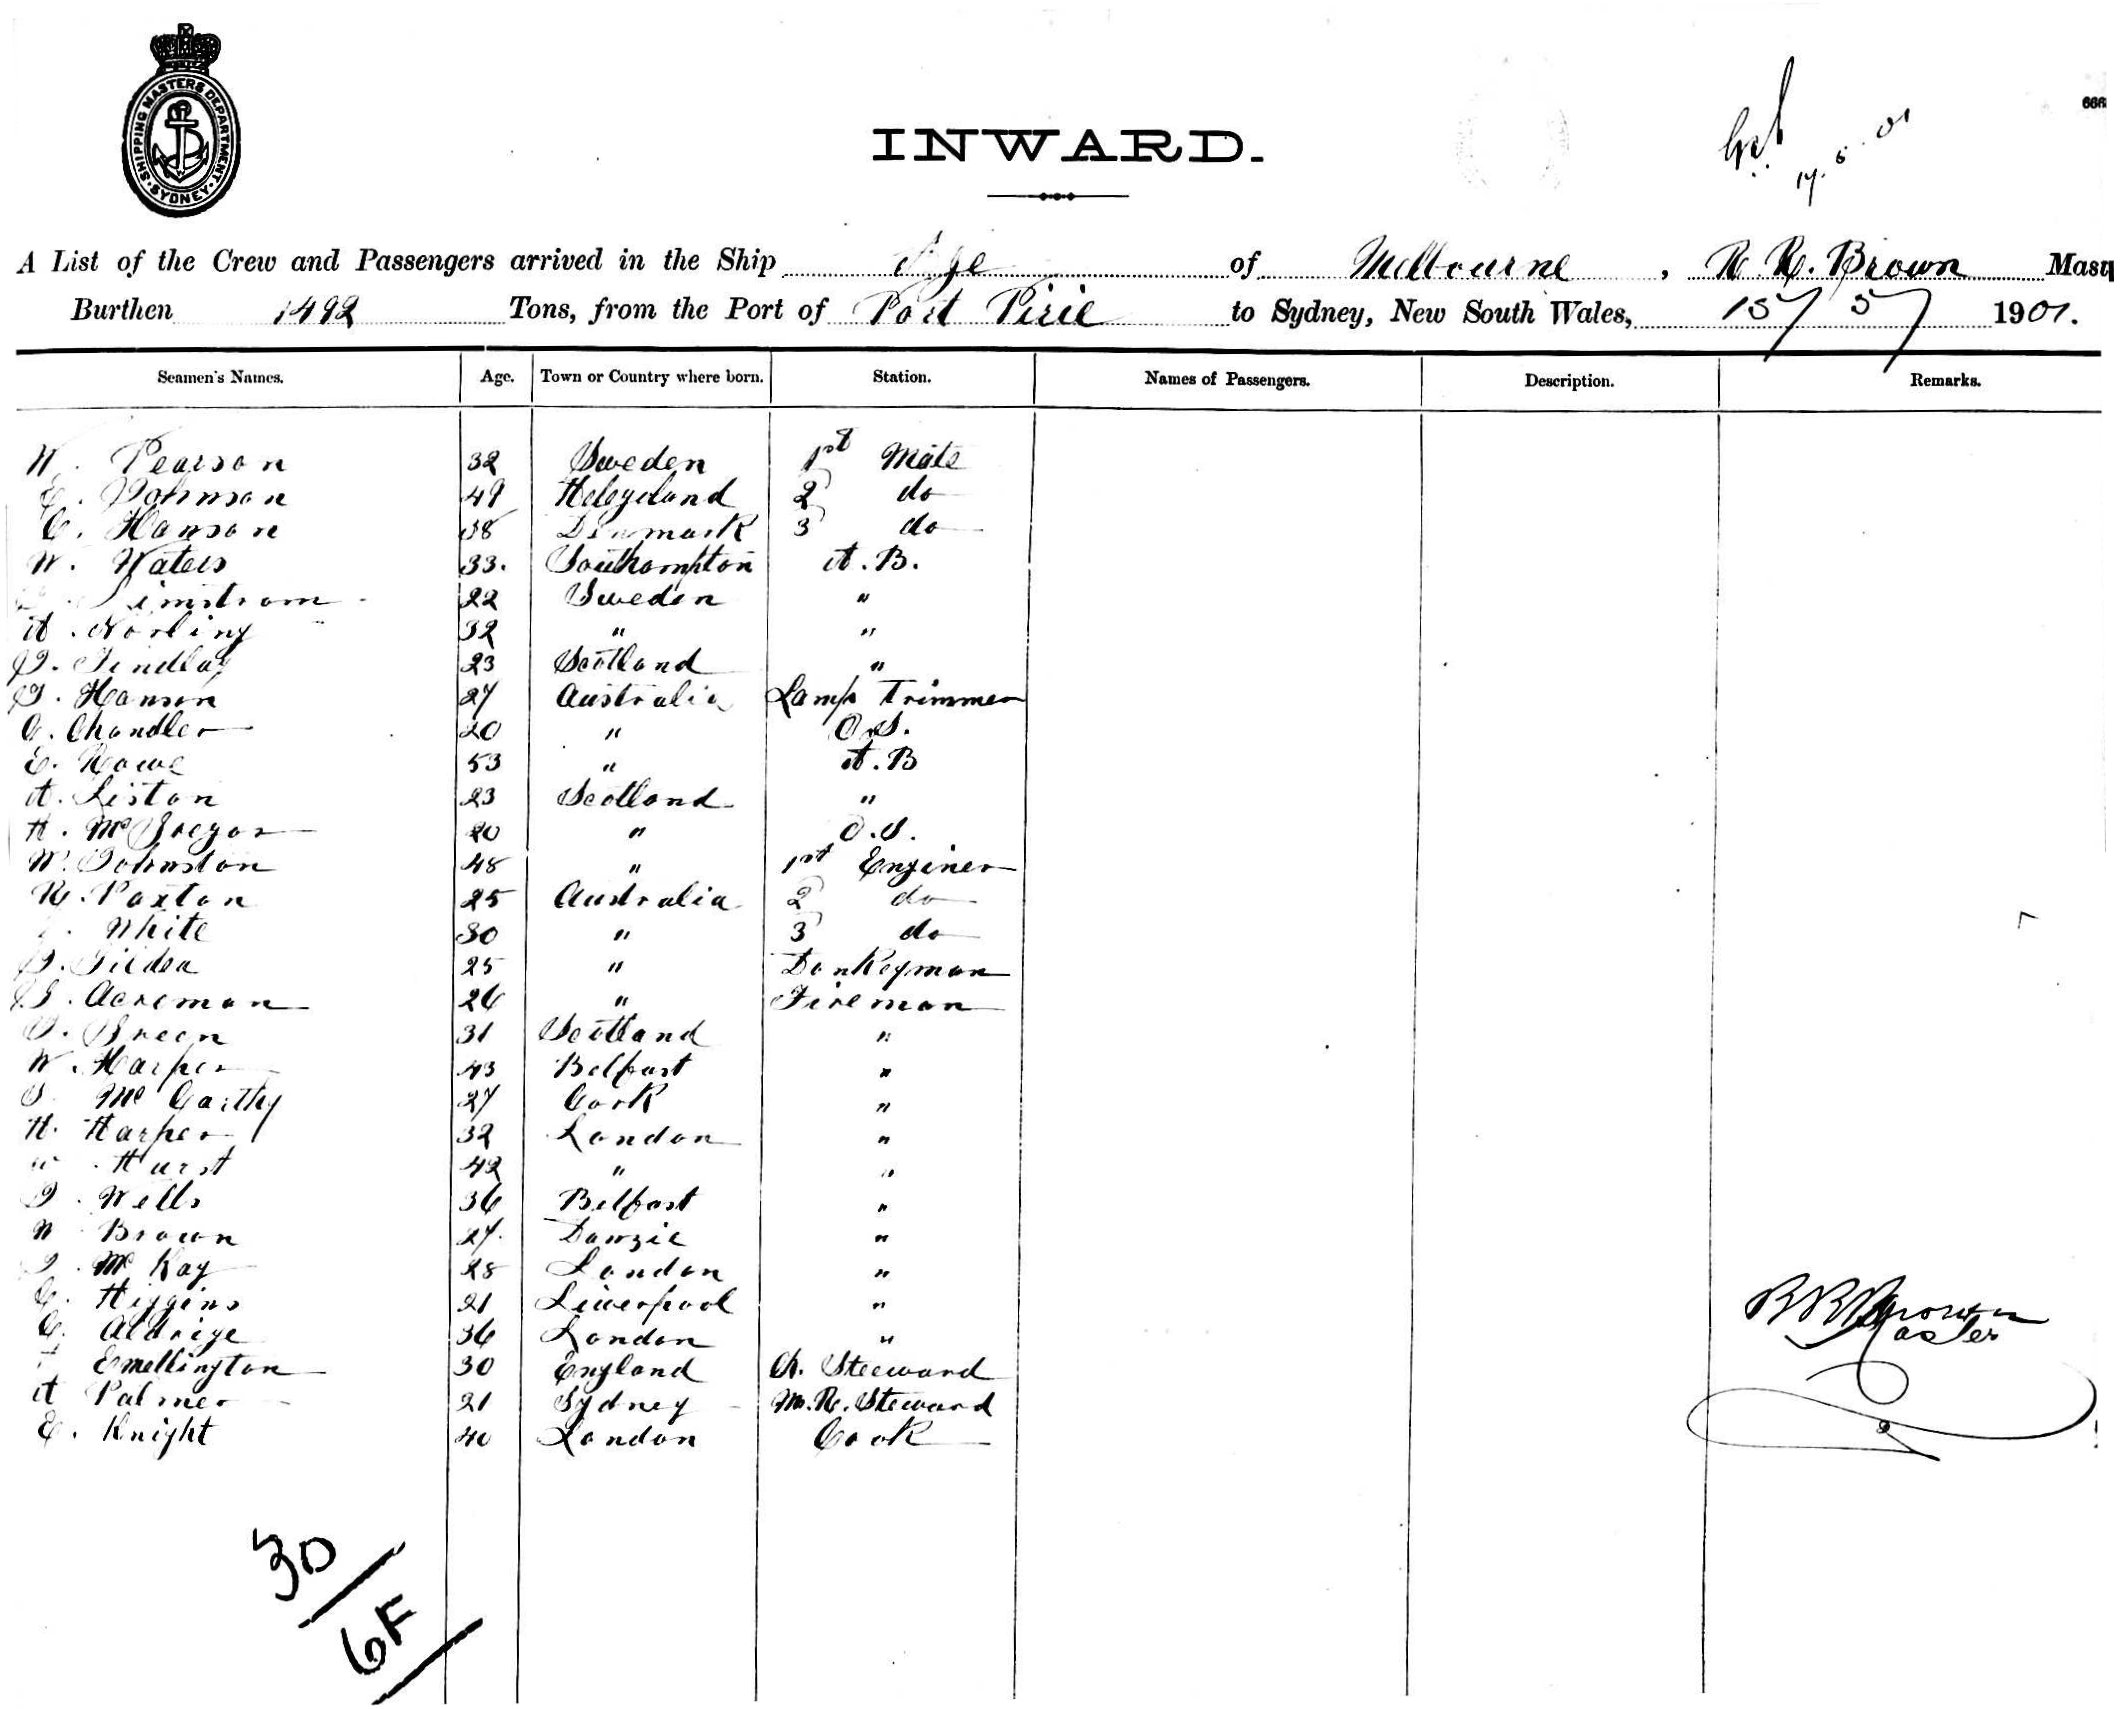 SHIPPING MASTERS DEPARTMENT. SYDNEY
666
INWARD.
17. 5. 01
A List of the Crew and Passengers arrived in the Ship Age of Melbourne, R. R. Brown Mast
Burthen 1492 Tons, from the Port of Port Pirie to Sydney, New South Wales, 15/5/ 1901.
Seamen's Names. Age. Town or Country where born. Station. Names of Passengers. Description. Remarks.
W. Pearson 32 Sweden 1st Mate
E. Johnson 49 Helegeland 2 do
C. Hanson 38 Denmark 3 do
W. Waters 33. Southampton A. B.
22 Sweden "
A. Norling 32 " "
J. Findlay 23 Scotland "
J. Hanson 27 Australia Lamp Trimmer
C. Chandler 20 " O.S.
E. Rowe 53 " A. B
A. Liston 23 Scotland "
H. McGregor 20 " O.S.
W. Johnston 48 " 1st Enginer
R. Paxton 25 Australia 2 do
White 30 " 3 do
J. Gilden 25 " Donkeyman
J. Acreman 26 " Fireman
J. Green 31 Scotland "
W. Harper 43 Belfast "
J. McCarthy 27 Cork "
H. Harper 32 London "
W. Hurst 42 " "
J. Wells 36 Belfast "
W Brown 27. Danzic "
J. McKay 28 London "
C. Higgins 21 Liverpool "
C. Aldrige 36 London "
Emellington 30 England Ch. Steeward
A Palmer 21 Sydney M.R. Steward
E. Knight 40 London Cook
R R Brown
Master
30
6F